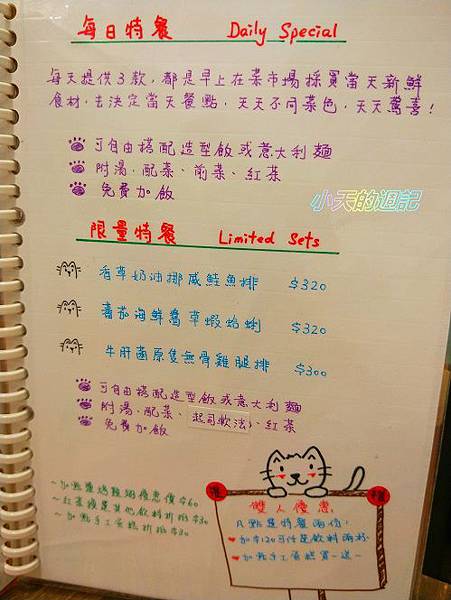 每日特餐 Daily Special
每天提供3款,都是早上在菜市場採買當天新鮮
食材,去決定當天餐點,天天不同菜色,天天驚喜!
可自由搭配造型飯或意大利麵
附湯.配菜、前菜、紅茶
免費加飯
小天的週記
限量特餐 Limited Sets
香草奶油挪威鮭魚排 $320
番茄海鮮醬草蝦蛤蜊 $320
牛肝菌原隻無骨雞腿排 $300
可自由搭配造型飯或意大利麵
附湯.配菜、起司軟法、紅茶
免費加飯
~加點 優惠價$60
~紅茶換其他飲料折抵$30
~加點手工蛋糕折抵$30
雙人優惠
凡點選特餐兩份,
加$120可任選飲料兩杯
加點手工蛋糕買一送一